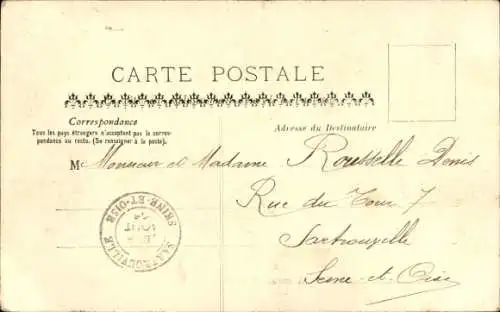 CARTE POSTALE
Correspondance
Tous les pays étrangers n'acceptent pas la corres-
pondance au recto. (Se renseigner à la poste).
Adresse du Destinataire
M Monsieur et Madame Rousselle Denis
Rue du Tour 7
Sartrouville
Seine-et-Oise
SARTROUVILLE
SEINE-ET-OISE
AOUT